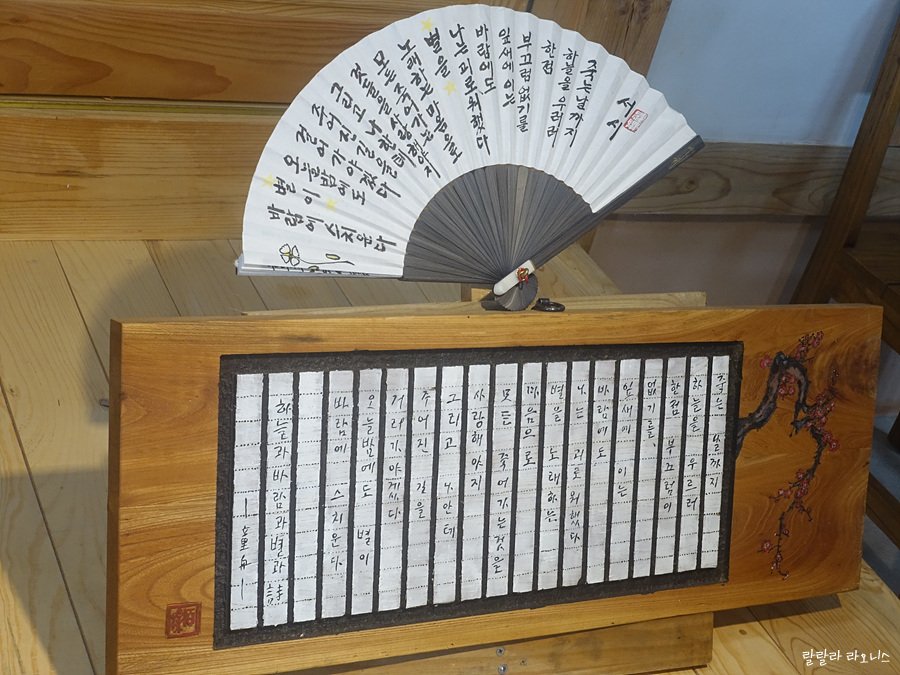 서시
죽는날까지
하늘을 우러러
한점
부끄럼 없기를
잎새에 이는
바람에도
나는 괴로워했다
별을
노래하는 마음으로
모든 죽어가는
것들을 사랑해야지
그리고 나한테
주어진 길을
걸어가야겠다
오늘밤에도
별이
바람에 스치운다
죽는 날까지
하늘을 우르러
한점 부끄럼이
없기를,
잎새에 이는
바람에도
나는 괴로워했다.
별을 노래하는
마음으로
모든 죽어가는것을
사랑해야지
그리고 나안테
주어진 길을
거러가야게다.
오늘밤에도 별이
바람에 스치운다.
하늘과 바람과 별과 詩
—童舟—
랄랄라 라오니스